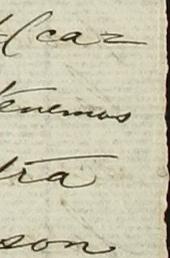 Alcaz
tenemos
tra
son